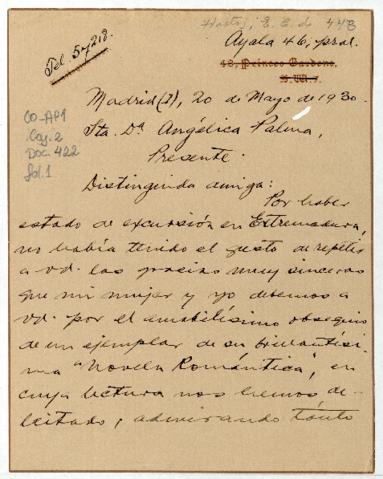 Hostos, E. C. de 448
Tel. 57213.
Ayala 46, pral.
48, Princes Gardens,
CO-AP1
Caj. 2
Doc. 422
fol. 1
Madrid (1), 20 de Mayo de 1930.
Sta. Dª Angélica Palma,
Presente.
Distinguida amiga:
Por haber
estado de excursión en Extremadura,
no había tenido el gusto de repetir
a vd. las gracias muy sinceras
que mi mujer y yo debemos a
vd. por el amabilísimo obsequio
de un ejemplar de su brillantísi-
ma "Novela Romántica", en
cuya lectura nos hemos de-
leitado, admirando tanto